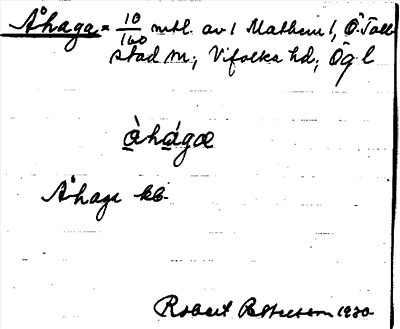 Åhaga = 10/160 mtl. av 1 Mathem 1, Ö. Toll
stad sn; Vifolka hd; Ög l
àhágœ
Åhage kb.
Robert Pettersson 1930